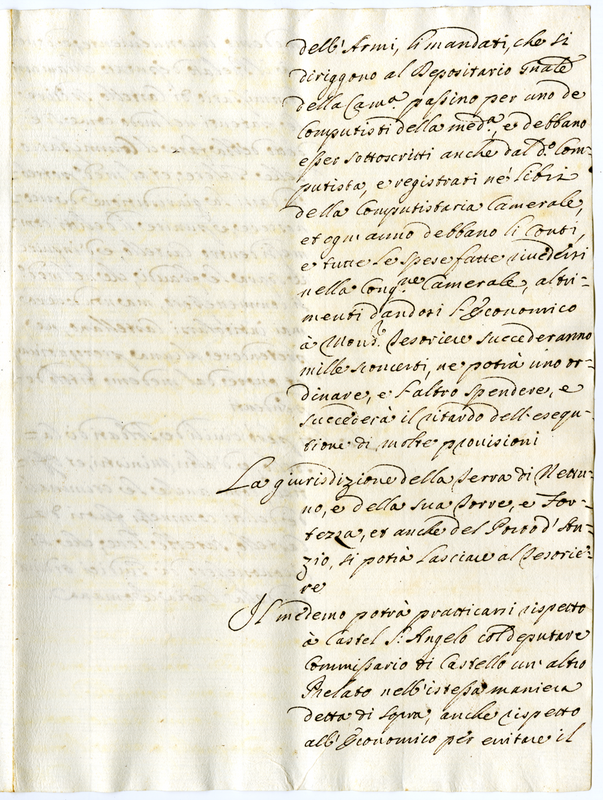 dell'Armi, li mandati, che si
diriggono al Depositario Gnãle
della Cam.ª passino per uno de
Computisti della med.ª, e debbano
esser sottoscritti anche dal d.º Com-
putista, e registrati ne' libri
della Computistaria Camerale,
et ogn'anno debbano li conti,
e tutte le spese fatte rivedersi
nella Cong.ne Camerale, altri-
menti dandosi l'Economico
à Mons.r Tesoriere succederanno
mille sconcerti, ne potrà uno or-
dinare, e l'altro spendere, e
succederà il ritardo dell'esequ-
tione di molte provisioni
La giurisdizione della Terra di Nettu-
no, e della sua Torre, e For-
tezza, et anche del Porto d'An-
zio, si potrà lasciare al Tesorie-
re
Il medemo potrà practicarsi rispetto
à Castel S. Angelo col deputare
Commissario di Castello un'altro
Prelato nell'istessa maniera
detta di sopra, anche rispetto
all'Economico per evitare il